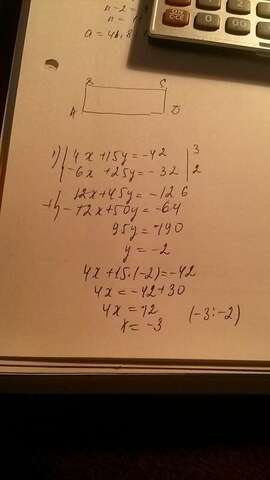 n-2=
n=1
a=46,8
B C
A D
1) | 4x+15y=-42 | 3
-6x+25y=-32 | 2
+ 12x+45y=-126
-12x+50y=-64
95y=-190
y=-2
4x+15·(-2)=-42
4x=-42+30
4x=-12
x=-3 (-3;-2)